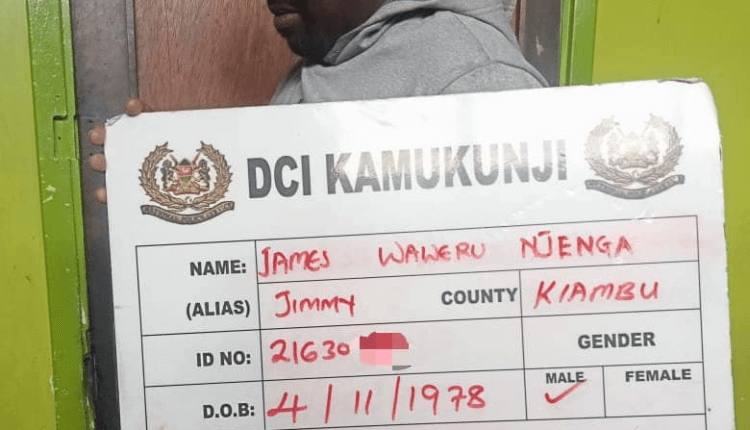 DCI KAMUKUNJI
NAME: JAMES WAWERU NJENGA
(ALIAS) JIMMY COUNTY KIAMBU
ID NO: 21630 GENDER
MALE FEMALE
D.O.B: 4/11/1978